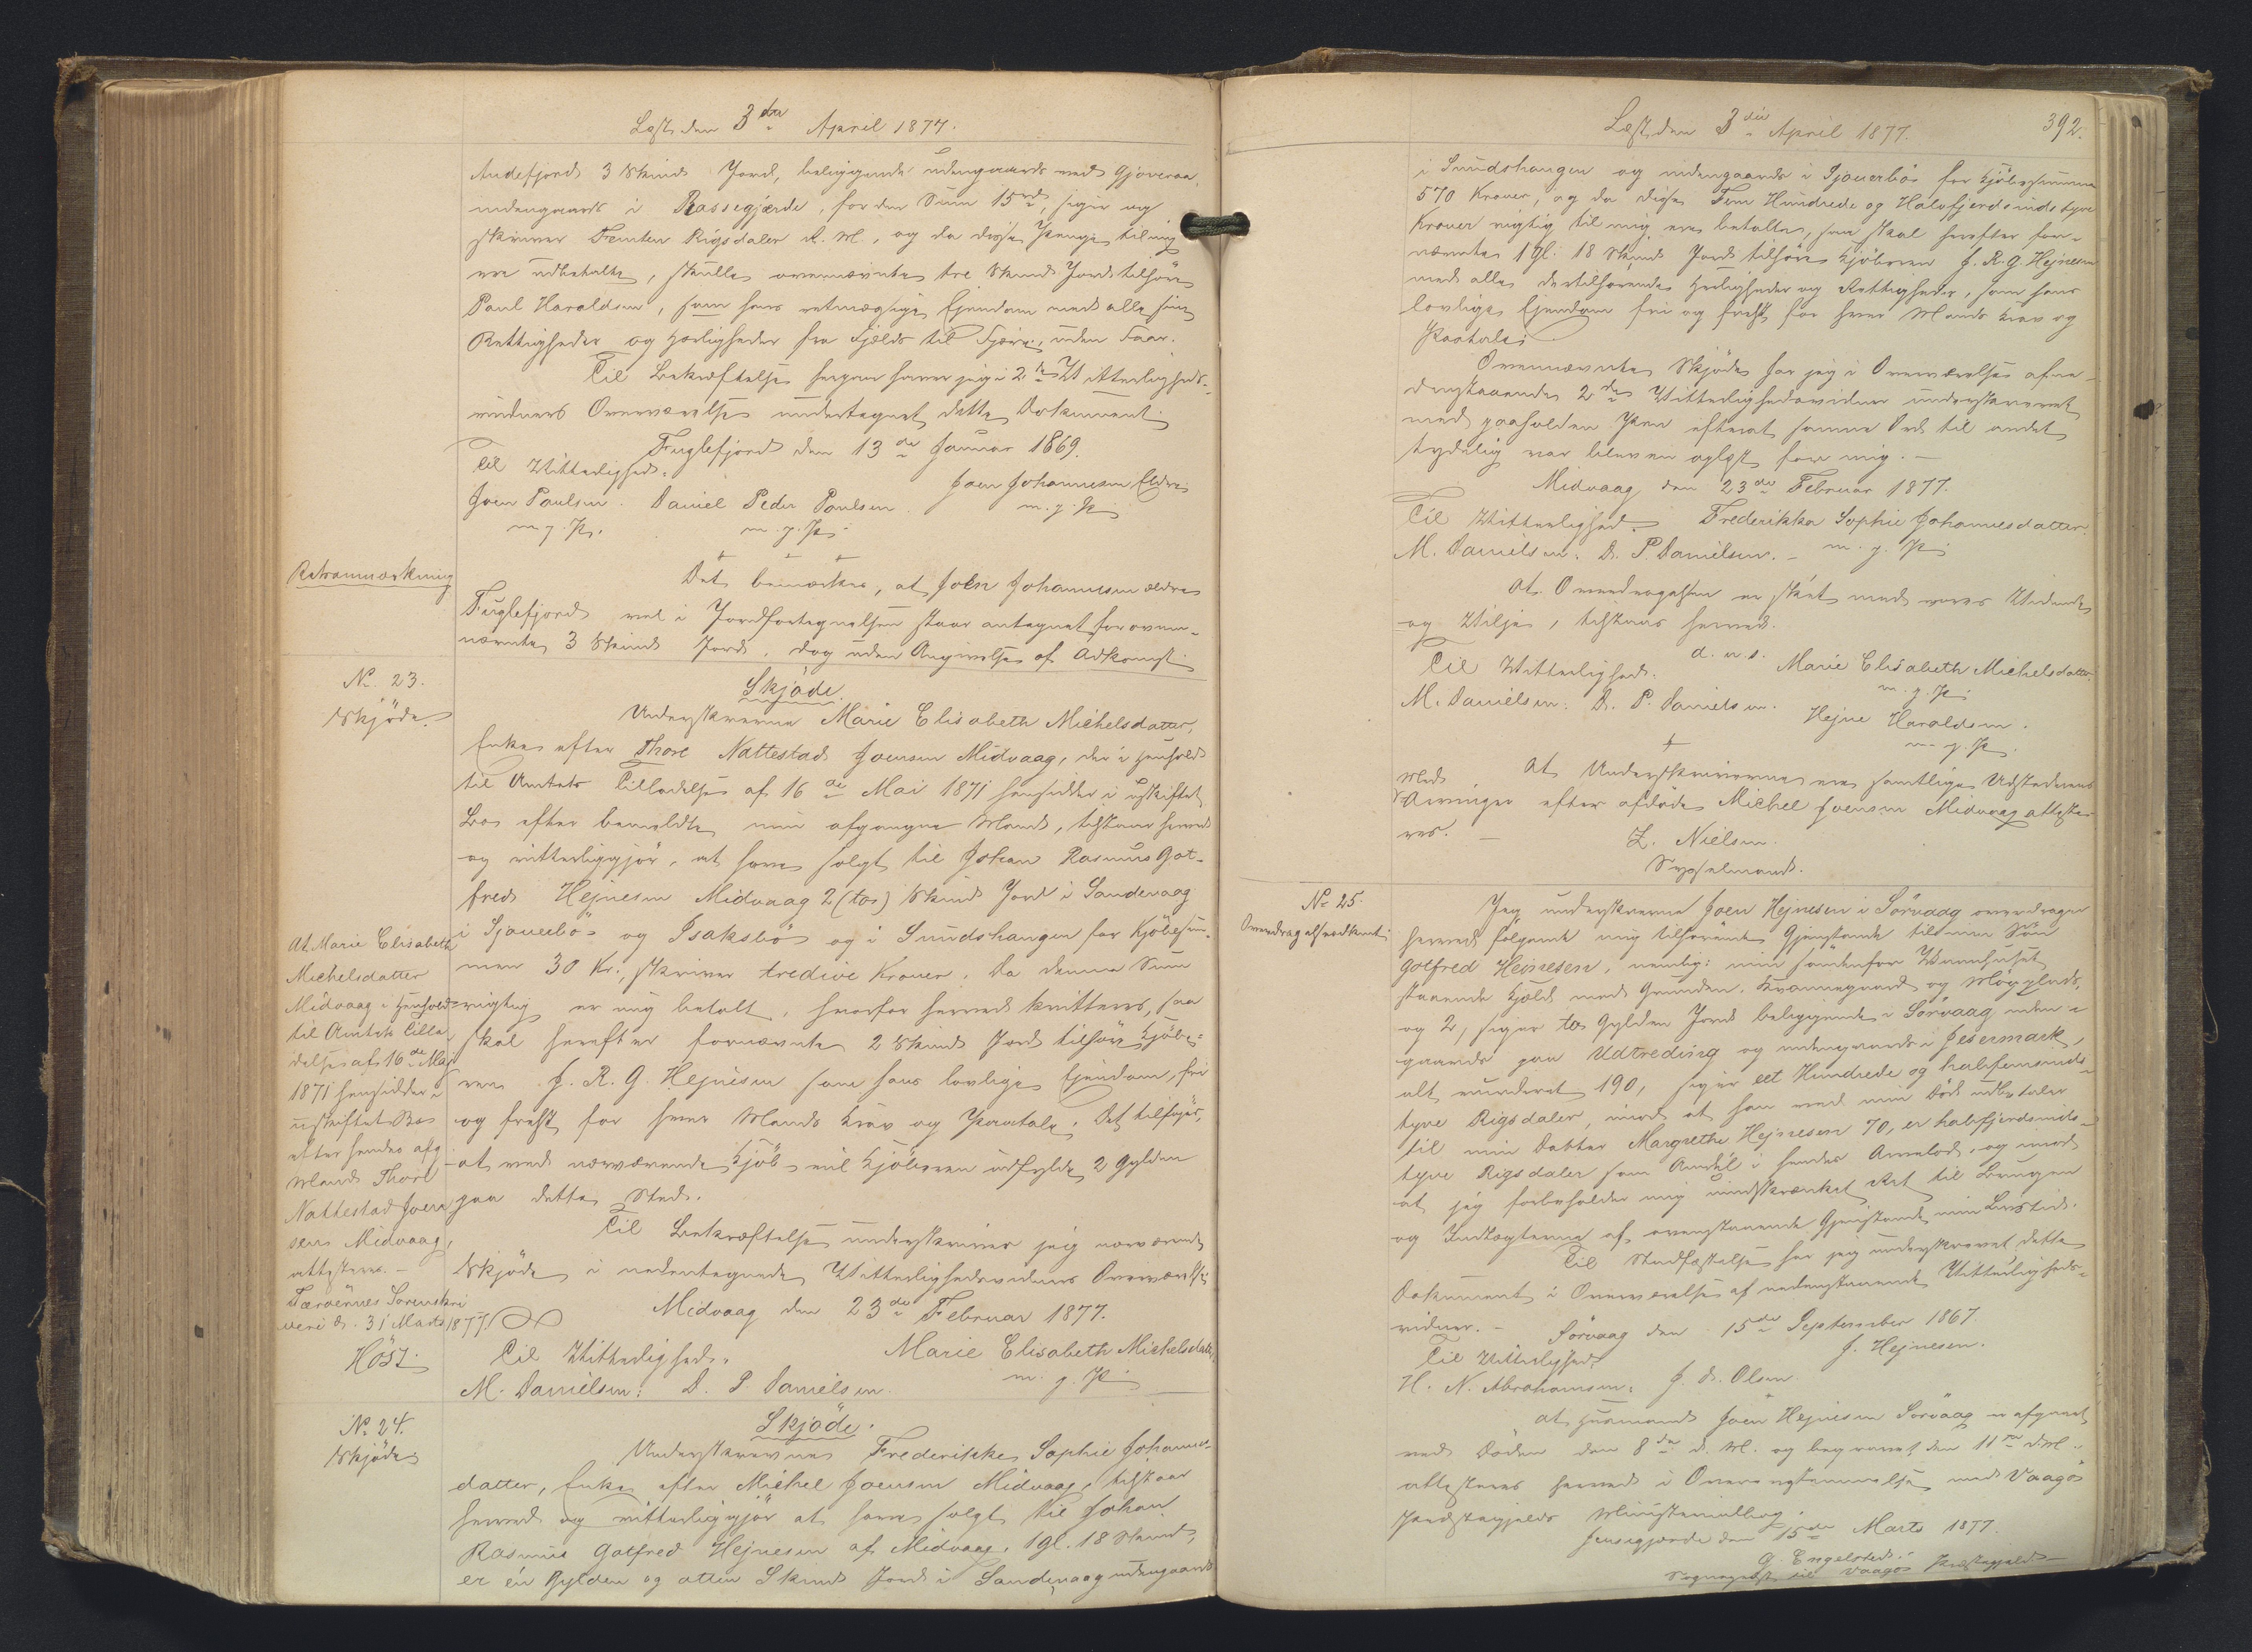 Læst den 3die April 1877.
Andefjord 3 Skind Jord, beliggende udengaards ved Gjoveraa,
indengaards i Rassegjærde, for den Sum 15 rd, siger og
skriver Femten Rigsdaler R. M., og da disse Penge til mig
ere udbetalte, skulle ovennævnte tre Skind Jord tilhøre
Paul Haraldsen, som hans retmæssige Ejendom med alle sine
Rettigheder og Herligheder fra Fjeld til Fjære, uden Faar.
Til Bekræftelse herpaa haver jeg i 2de Vitterligheds-
vidners Overværelse undertegnet dette Dokument.
Fuglefjord den 13de Januar 1869.
Til Vitterlighed: Joen Johannesen Eldre
Joen Paulsen. Daniel Peder Poulsen. m. g. P.
m. g. P. m. g. P.
Retsanmærkning
Det bemærkes, at Joen Johannesen ældre
Fuglefjord vel i Jordfortegnelsen staar antegnet for oven-
nævnte 3 Skind Jord, dog uden Angivelse af Adkomst.
No. 23.
Skjöde.
Skjöde.
Underskrevne Marie Elisabeth Michelsdatter,
Enke efter Thore Nattestad Joensen Midvaag, der i Henhold
til Amtets Tilladelse af 16de Mai 1871 hensidder i uskiftet
Bo efter bemeldte min afgangne Mand, tilstaar herved
og vitterliggjör, at have solgt til Johan Rasmus Got-
fred Hejnesen Midvaag 2 (to) Skind Jord i Sandevaag
i Sjouerbö og Isaksbö og i Sundshangen for Kjöbesum-
men 30 Kr., skriver tredive Kroner. Da denne Sum
rigtig er mig betalt, hvorfor herved kvitteres, saa
skal herefter fornævnte 2 Skind Jord tilhøre Kjöbe-
ren J. R. G. Hejnesen som hans lovlige Ejendom, fri
og frelst for hver Mands Krav og Paatale. Det tilføjes,
at ved nærværende Kjöb vil Kjöberen udfylde 2 Gylden
paa dette Sted.
Til Bekræftelse underskriver jeg nærværende
Skjöde i nedentegnede Vitterlighedsvidners Overværelse.
Midvaag den 23de Februar 1877.
Til Vitterlighed: Marie Elisabeth Michelsdatter.
M. Danielsen: D. P. Danielsen. m. g. P.
At Marie Elisabeth
Michelsdatter
Midvaag i Henhold
til Amtets Tilla
delse af 16de Mai
1871 hensidder i
uskiftet Bo
efter hendes afg
Mand Thore
Nattestad Joen
sen Midvaag,
attesteres.
Færøernes Sorenskri
veri d. 31 Marts 1877.
Höst
No. 24.
Skjöde
Skjöde.
Underskrevne Frederikke Sophie Johannes-
datter, Enke efter Michel Joensen Midvaag, tilstaar
herved og vitterliggjör at have solgt til Johan
Rasmus Gotfred Hejnesen af Midvaag, 1 gl. 18 Skind,
er én Gylden og atten Skind Jord i Sandevaag udengaards
Læst den 3die April 1877. 392.
i Sundshangen og indengaards i Sjouerbö for Kjöbesummen
570 Kroner, og da disse Fem Hundrede og Halvfjerdsindstyve
Kroner rigtig til mig ere betalte, saa skal herefter for-
nævnte 1 Gl. 18 Skind Jord tilhöre Kjöberen J. R. G. Hejnesen
med alle dertilhørende Herligheder og Rettigheder, som hans
lovlige Ejendom fri og frelst for hver Mands Krav og
Paatale.
Ovennævnte Skjöde har jeg i Overværelse af ne-
denstaaende 2de Vitterlighedsvidner underskrevet
med paaholden Pen efterat samme Ord til andet
tydelig var bleven oplæst for mig. —
Midvaag, den 23de Februar 1877.
Til Vitterlighed. Frederikka Sophie Johannesdatter.
M. Danielsen. D. P. Danielsen. — m. g. P.
At Overdragelsen er skeet med vores Vidende
og Vilje, tilstaas herved.
d. u. s.
Til Vitterlighed. Marie Elisabeth Michelsdatter.
M. Danielsen. D. P. Danielsen. m. g. P.
Hejne Haraldsen.
m. g. P.
At Underskriverne ere samtlige Udstederens
Med
Arvinger efter afdöde Michel Joensen Midvaag, atteste-
res. —
Z. Nielsen
Sysselmand.
No. 25.
Overdragelsesdokument
Jeg underskrevne Joen Hejnesen i Sörvaag overdrager
herved følgende mig tilhørende Gjenstande til min Sön
Gotfred Hejnesen, nemlig: min søndenfor Vaanhuset
staaende Hjald med Grunden, Kvannegaard og Möggluds,
og 2, siger to Gylden Jord beliggende i Sörvaag inden-
gaards paa Udtreding og indengaards i Jesermark,
alt vurderet 190, siger eet Hundrede og halvfemsinds-
tyve Rigsdaler, imod at han ved min Död udbetaler
til min Datter Margrethe Hejnesen 70, er halvfjerdsinds-
tyve Rigsdaler som Andél i hendes Arvelod, og imod
at jeg forbeholder mig uindskrænket Ret til Brugen
og Indtægterne af ovenstaaende Gjenstande min Livstid.
Til Stadfæstelse har jeg underskrevet dette
Dokument i Overværelse af nedenstaaende Vitterligheds-
vidner. —
Sörvaag den 15de September 1867.
Til Vitterlighed: J. Hejnesen.
H. N. Abrahamsen. J. D. Olsen.
At Husmand Joen Hejnesen Sörvaag er afgaaet
ved Döden den 8de d. M. og begravet den 11te d. M.
attesteres herved i Overensstemmelse med Vaagö
Præstegjelds Ministerialbog.
Jensagjærde den 15de Marts 1877.
G. Engelsted.
Sognepræst til Vaagös Præstegjeld. —